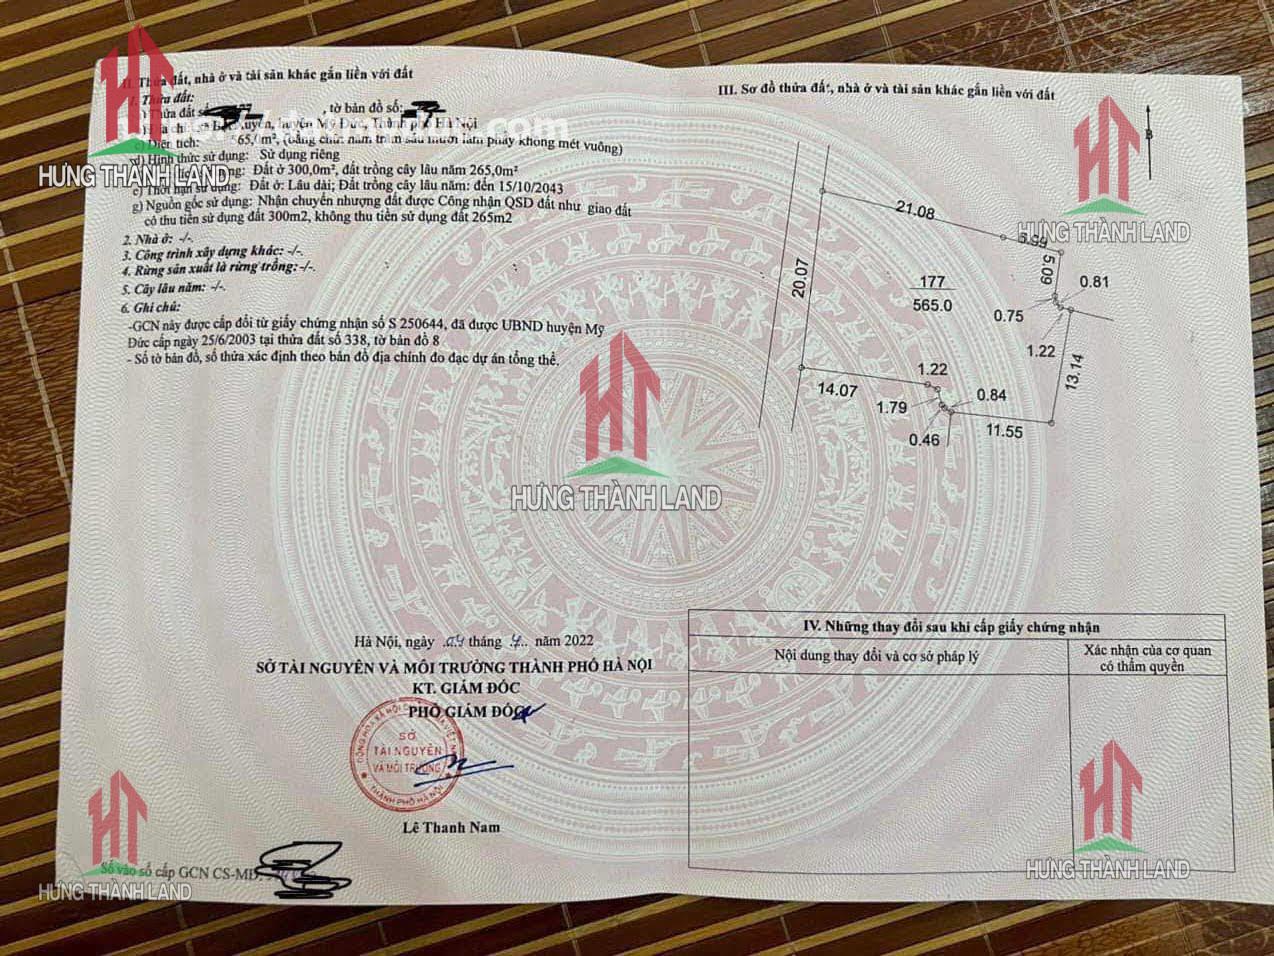 II. Thửa đất, nhà ở và tài sản khác gắn liền với đất
1. Thửa đất:
Thửa đất số , tờ bản đồ số:
huyện Mỹ Đức, Thành phố Hà Nội
c) Diện tích: 565,0m², (bằng chữ: năm trăm sáu mươi lăm phẩy không mét vuông)
d) Hình thức sử dụng: Sử dụng riêng
Đất ở 300,0m², đất trồng cây lâu năm 265,0m²
e) Thời hạn sử dụng: Đất ở: Lâu dài; Đất trồng cây lâu năm: đến 15/10/2043
g) Nguồn gốc sử dụng: Nhận chuyển nhượng đất được Công nhận QSD đất như giao đất
có thu tiền sử dụng đất 300m2, không thu tiền sử dụng đất 265m2
2. Nhà ở: -/-.
3. Công trình xây dựng khác: -/-.
4. Rừng sản xuất là rừng trồng:-/-.
5. Cây lâu năm: -/-.
6. Ghi chú:
-GCN này được cấp đổi từ giấy chứng nhận số S 250644, đã được UBND huyện Mỹ
Đức cấp ngày 25/6/2003 tại thửa đất số 338, tờ bản đồ 8
- Số tờ bản đồ, số thửa xác định theo bản đồ địa chính đo đạc dự án tổng thể.
Hà Nội, ngày 04 tháng 7 năm 2022
SỞ TÀI NGUYÊN VÀ MÔI TRƯỜNG THÀNH PHỐ HÀ NỘI
KT. GIÁM ĐỐC
PHÓ GIÁM ĐỐC
SỞ
TÀI NGUYÊN
VÀ MÔI TRƯỜNG
THÀNH PHỐ HÀ NỘI
Lê Thanh Nam
Số vào sổ cấp GCN CS-MĐ:
III. Sơ đồ thửa đất, nhà ở và tài sản khác gắn liền với đất
B
21.08
5.09
0.81
20.07
177
565.0
0.75
1.22
13.14
14.07
1.22
1.79
0.84
0.46
11.55
IV. Những thay đổi sau khi cấp giấy chứng nhận
Nội dung thay đổi và cơ sở pháp lý
Xác nhận của cơ quan
có thẩm quyền
HƯNG THÀNH LAND
HƯNG THÀNH LAND
HƯNG THÀNH LAND
HƯNG THÀNH LAND
HƯNG THÀNH LAND